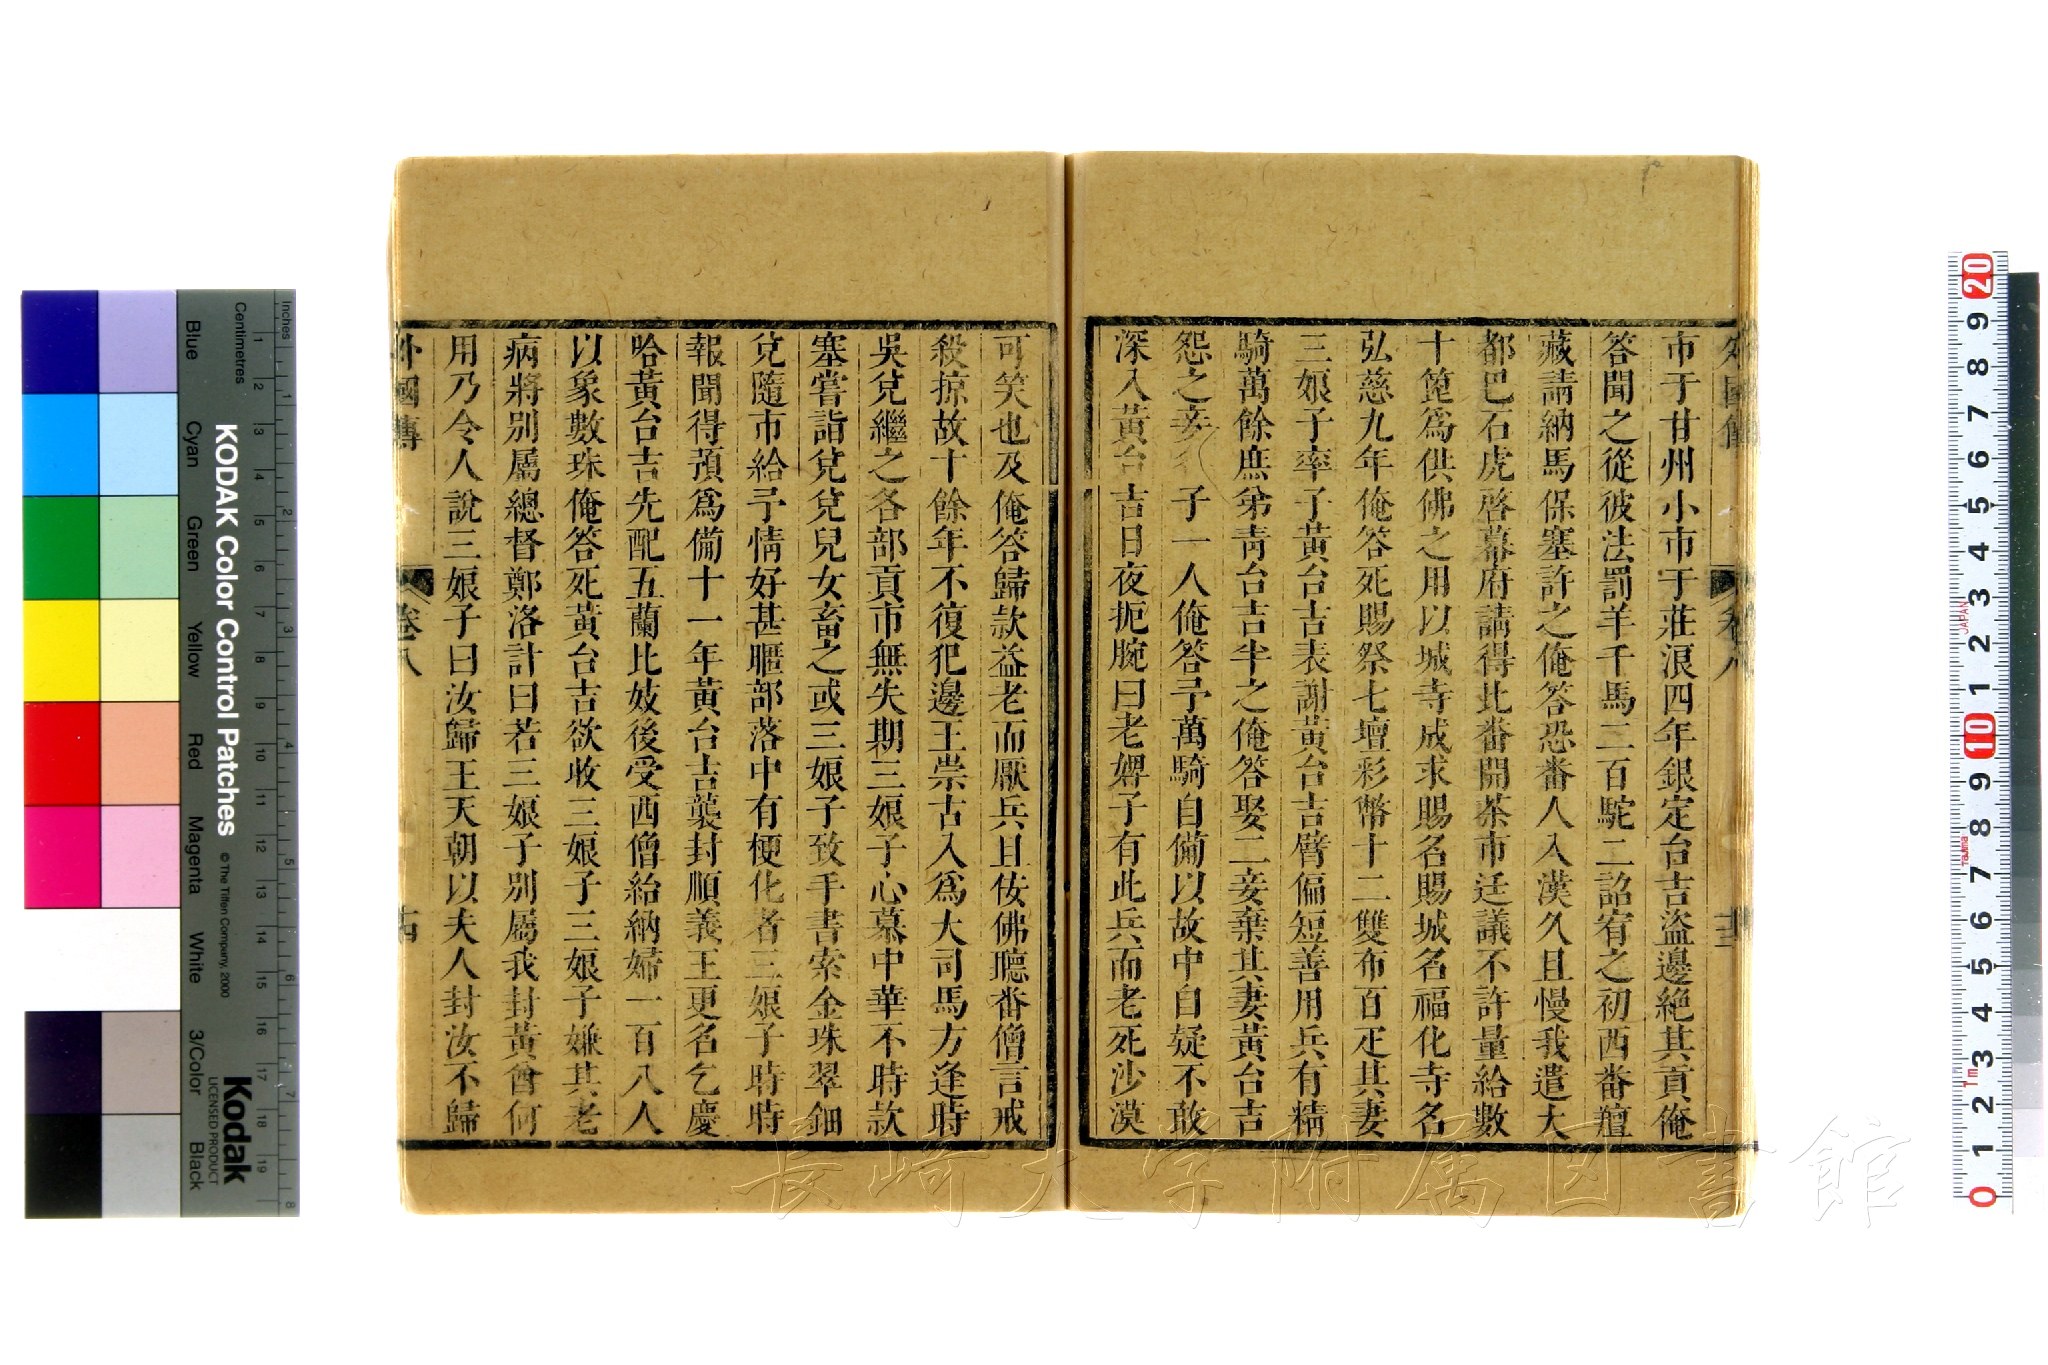 市于甘州小市于莊浪四年銀定台吉盜邊絶其貢俺
答聞之從彼法罰羊千馬二百駝二詔宥之初西番羶
藏請納馬保塞許之俺答恐番人入漢久且慢我遣大
都巴石虎啓幕府請得比番開茶市廷議不許量給數
十篦爲供佛之用以城寺成求賜名賜城名福化寺名
弘慈九年俺答死賜祭七壇彩幣十二雙布百疋其妻
三娘子率子黃台吉表謝黃台吉臂偏短善用兵有精
騎萬餘庶弟靑台吉半之俺答娶二妾棄其妻黃台吉
怨之妾 子一人俺答予萬騎自備以故中自疑不敢
深入黃台吉日夜扼腕曰老婢子有此兵而老死沙漠
可笑也及俺答歸款益老而厭兵且佞佛聽番僧言戒
殺掠故十餘年不復犯邊王崇古入爲大司馬方逢時
吳兌繼之各部貢市無失期三娘子心慕中華不時款
塞嘗詣兌兌兒女畜之或三娘子致手書索金珠翠鈿
兌隨市給予情好甚暱部落中有梗化者三娘子時時
報聞得預爲備十一年黃台吉襲封順義王更名乞慶
哈黃台吉先配五蘭比妓後受西僧紿納婦一百八人
以象數珠俺答死黃台吉欲收三娘子三娘子嫌其老
病將別屬總督鄭洛計曰若三娘子別屬我封黃酋何
用乃令人說三娘子曰汝歸王天朝以夫人封汝不歸
外國傳
卷八
十四
KODAK Color Control Patches
© The Tiffen Company, 2000
Kodak
LICENSED PRODUCT
Inches
Centimetres
Blue
Cyan
Green
Yellow
Red
Magenta
White
3/Color
Black
JAPAN
Tajima
長崎大学附属図書館